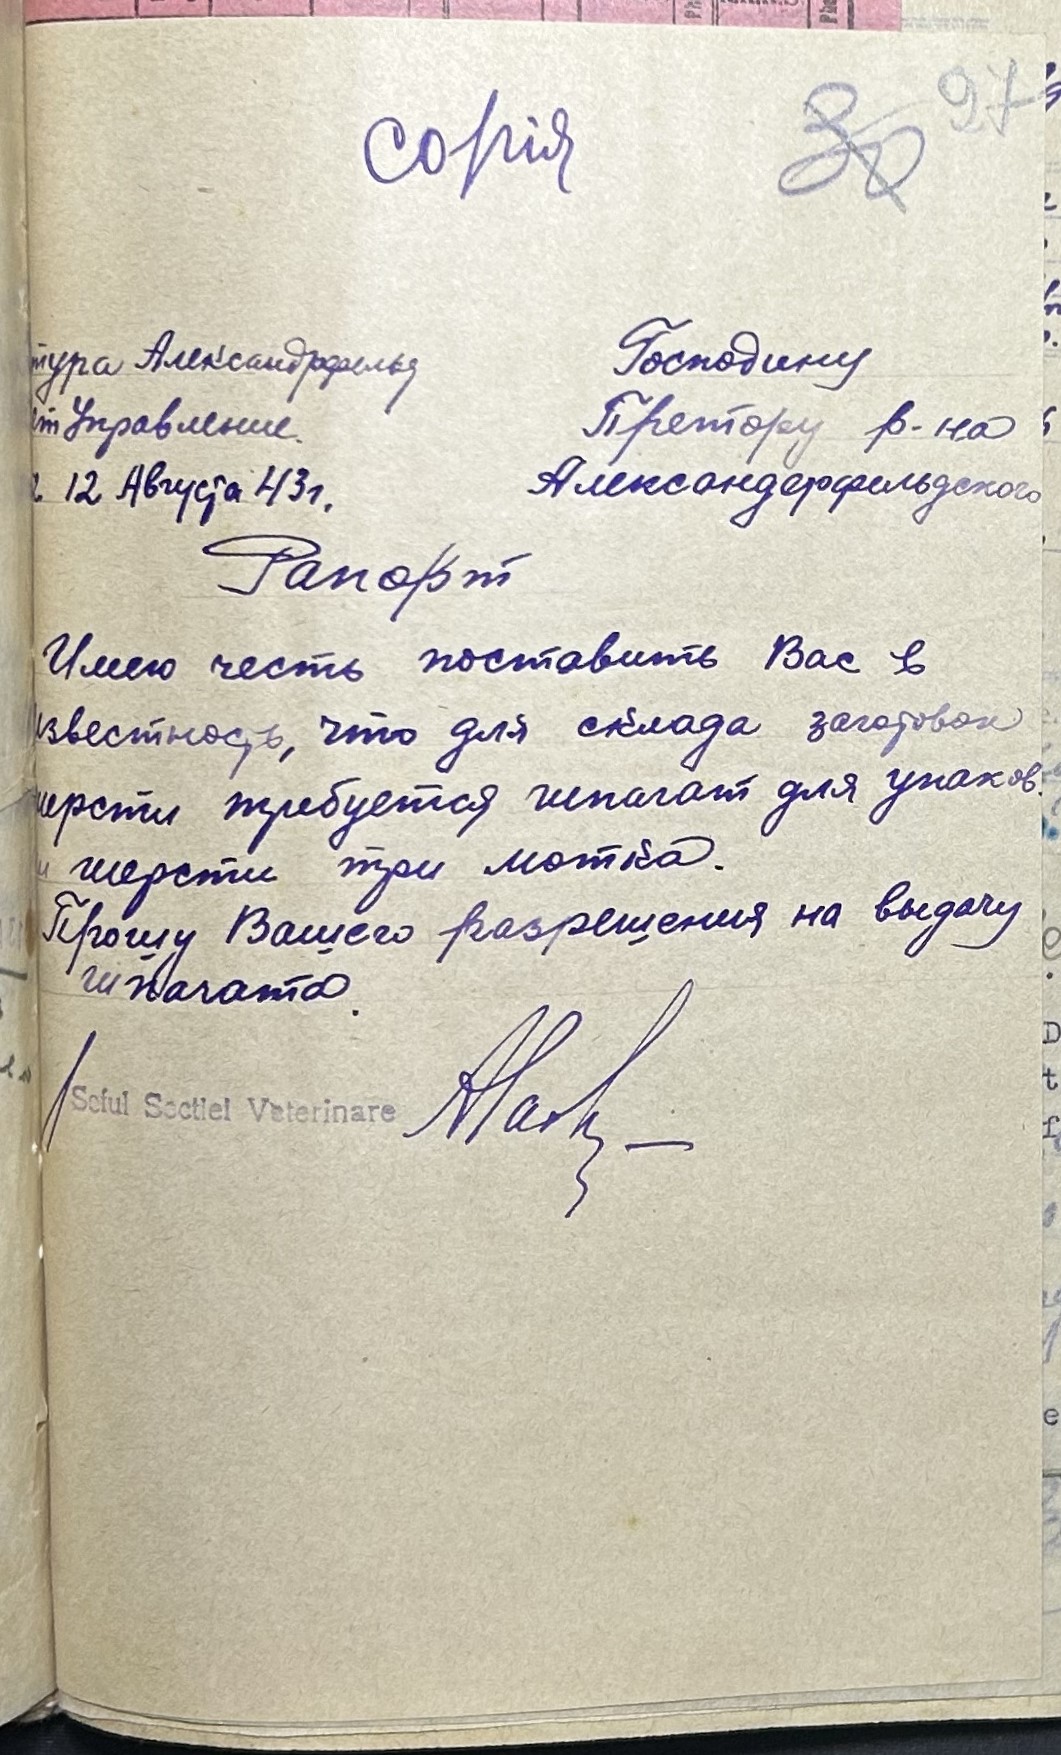 copia
30 97
тура Александрфельд
Господину
Управление.
Претору р-на
12 Августа 43 г.
Александерфельдского
Рапорт
Имею честь поставить Вас в
звестность, что для склада заготовок
ерсти требуется шпагат для упаков.
и шерсти три мотка.
Прошу Вашего разрешения на выдачу
шпагата.
Seful Sectiei Veterinare